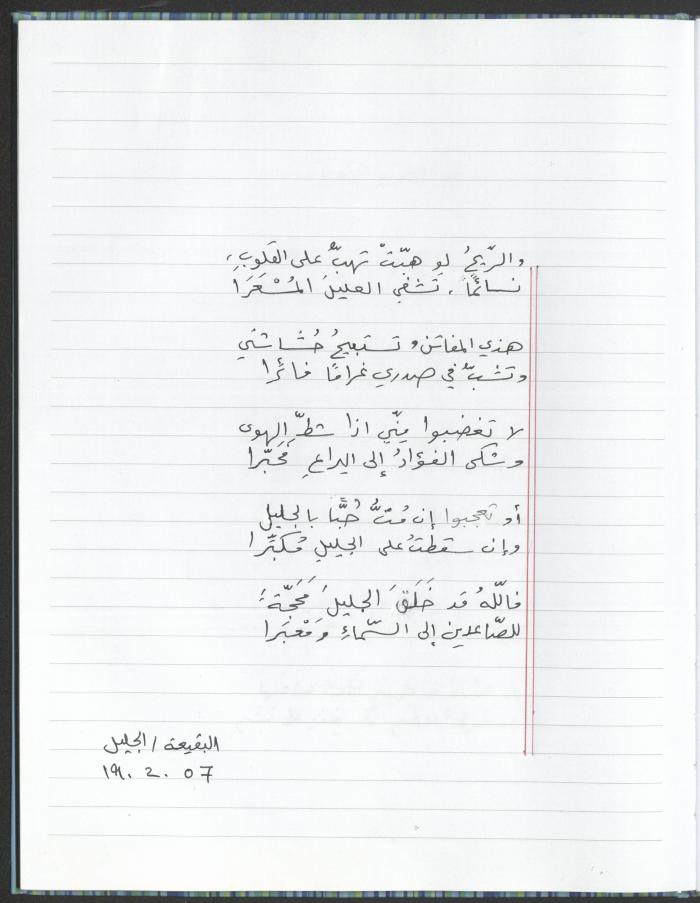 والرّيحُ لو هبّتْ تهبُّ على القلوبِ،
نسائمًا، تشفي العليلَ المُسْعَرَا
هذي المفاتن، تستبيحُ حُشاشتي
وتشبُّ في صدري غرامًا فائرا
لا تغضبوا مِنّي اذا شطّ الهوى
وشكى الفؤادُ إلى اليراعِ مُحَبّرا
أو تعجبوا إن مُتُّ حُبًّا بالجليلِ
وإن سقطتُ على الجليلِ مُكبِّرا
فاللّهُ قد خَلَقَ الجليلَ مَحَجّةً
للصّاعدين إلى السّماءِ وَمَعْبَرا
البقيعة / الجليل
١٩. 2. 07